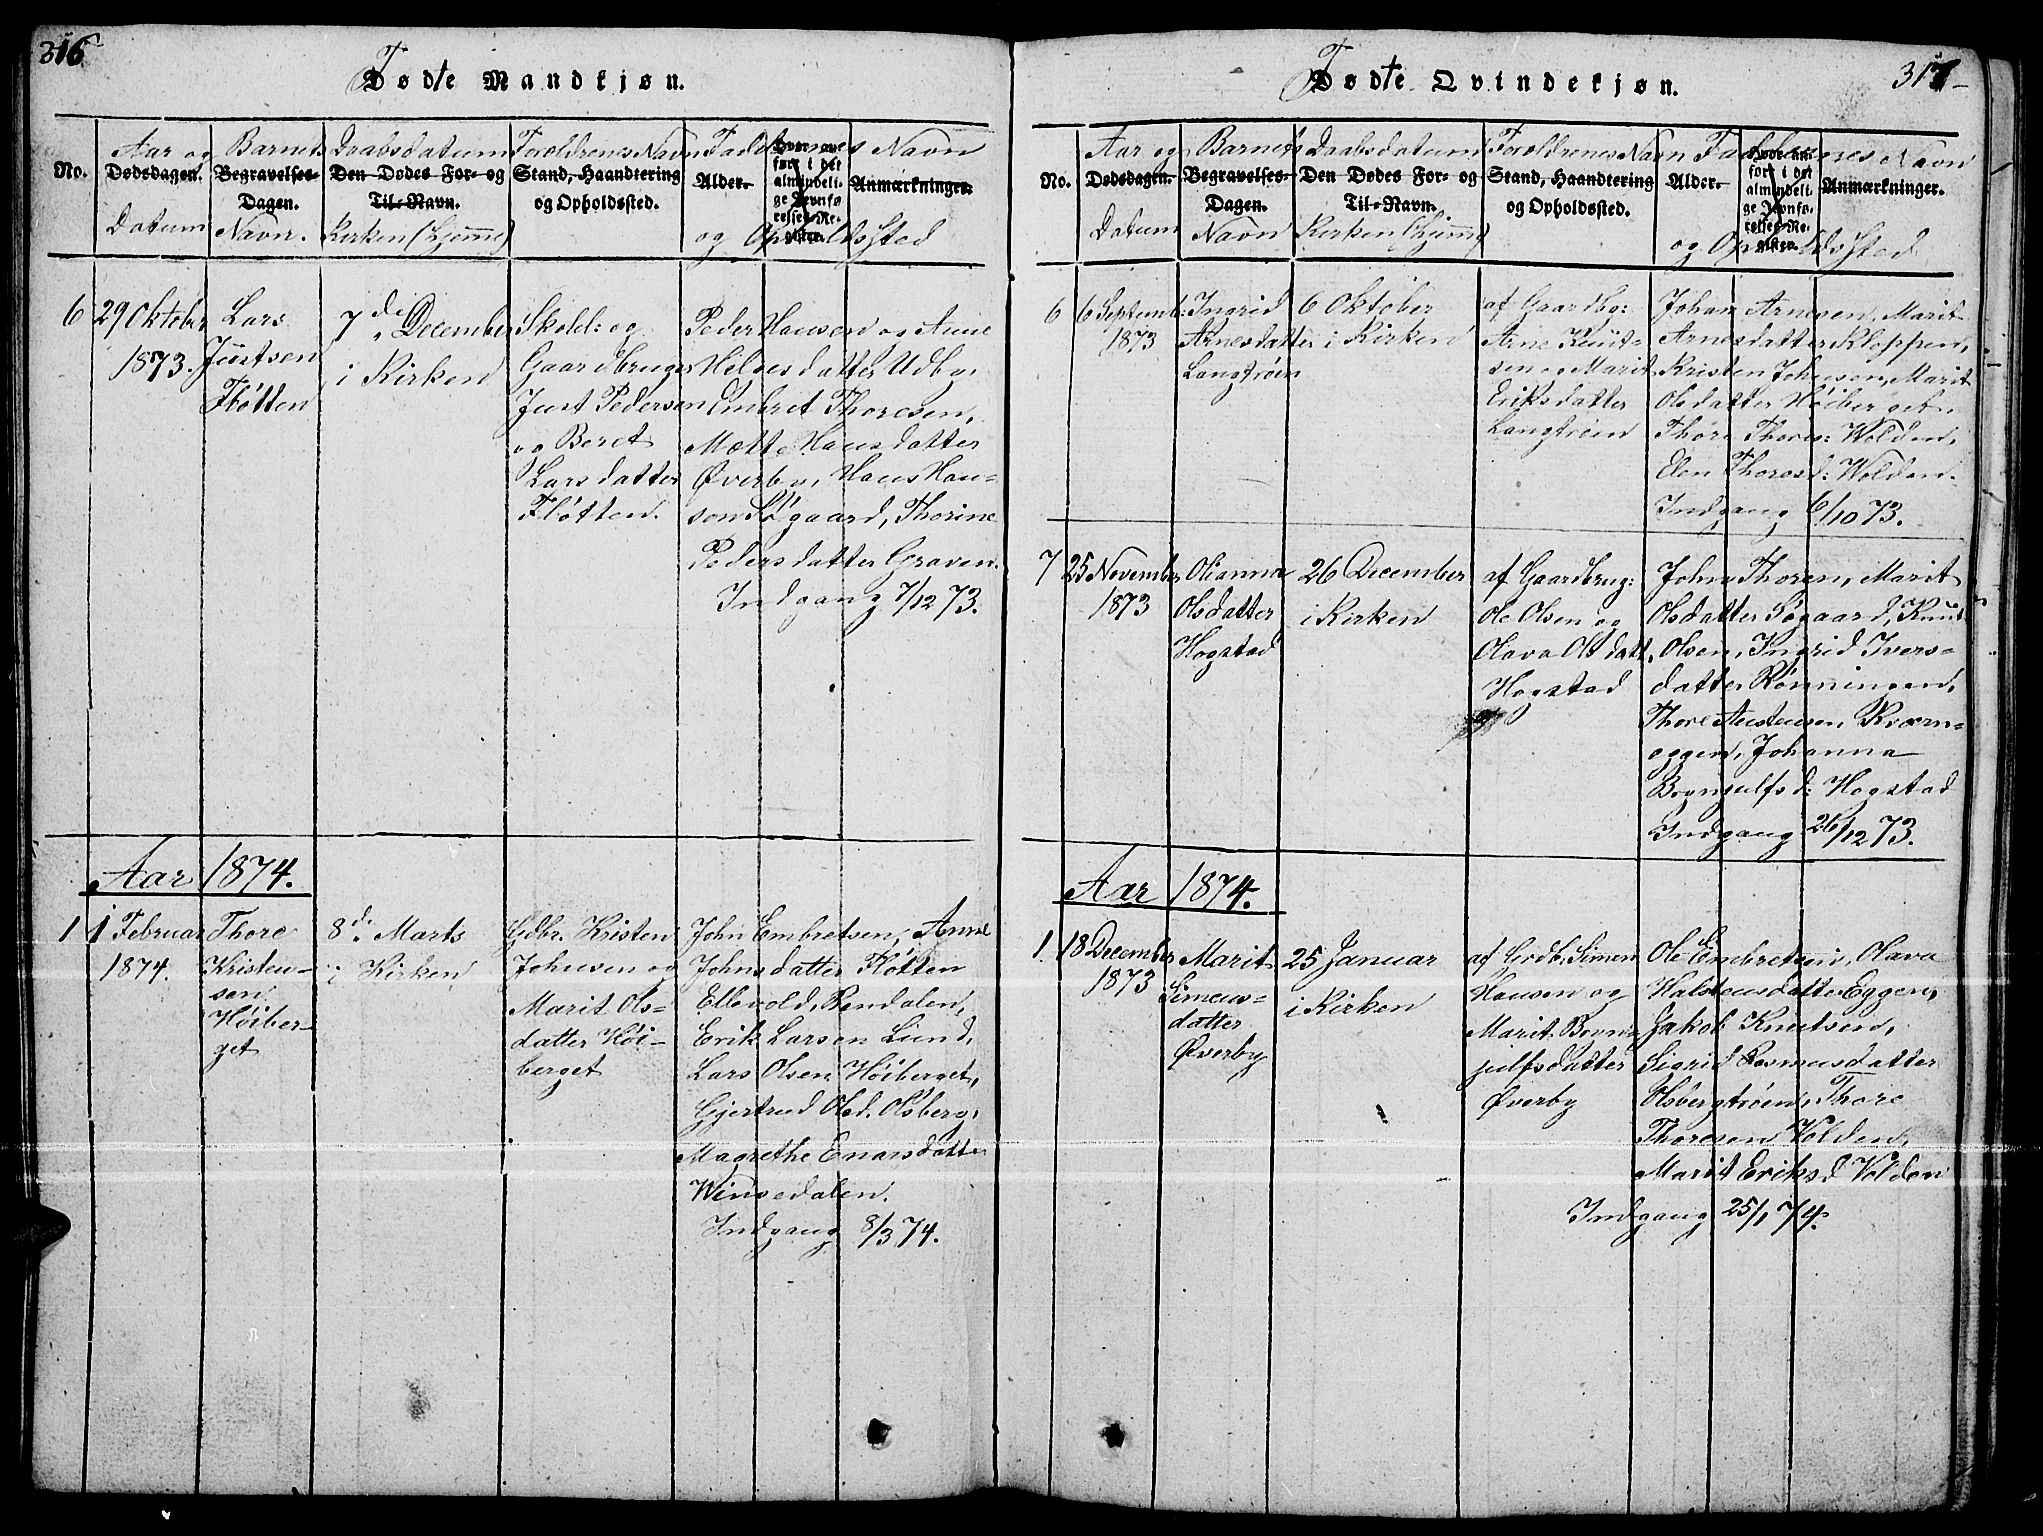 316
Fødte Mandkjøn.
No.
Aar og
Dødsdagen.
Datum
Barnets
Begravelses-
Dagen.
Navn.
Daabsdatum
Den Dødes For- og
Til-Navn.
Kirken (Hjemme)
Forældrenes Navn
Stand, Haandtering
og Opholdssted.
Faddernes Navn
Alder.
Hvor an-
ført i det
almindeli-
ge Jevnfø-
relses-Re-
gister.
Anmærkninger.
og Opholdssted
6
29 Oktober
1873.
Lars
Justsen
Fløtten
7de December
i Kirken
Skoleh: og
Gaardbruger
Just Pedersen
og Beret
Larsdatter
Fløtten.
Peder Hansen og Anne
Nilsdatter Udby,
Embret Thoresen,
Mette Hansdatter
Øverby, Hans Han-
sen Søgaard, Thorine
Pedersdatter Graven.
Indgang 7/12 73.
Aar 1874.
1
1 Februar
1874.
Thore
Kristen-
sen
Høiber-
get
8de Marts
i Kirken
Gdbr. Kristen
Johnsen og
Marit Ols-
datter Høi-
berget
John Embretsen, Anne
Johnsdatter Fløtten
Ellevold, Rendalen,
Erik Larsen Lund,
Lars Olsen Høiberget,
Gjertrud Olsd. Olsberg,
Magrethe Enarsdatter
Winsedalen.
Indgang 8/3 74.
317
Fødte Qvindekjøn.
No.
Aar og
Dødsdagen.
Datum
Barnets
Begravelses-
Dagen.
Navn
Daabsdatum
Den Dødes For- og
Til-Navn.
Kirken (Hjemme)
Forældrenes Navn
Stand, Haandtering
og Opholdssted.
Faddernes Navn
Alder.
Hvor an-
ført i det
almindeli-
ge Jevnfø-
relses-Re-
gister.
Anmærkninger.
og Opholdssted
6
6 Septemb:
1873
Ingrid
Arnesdatter
Langtrøen
6 Oktober
i Kirken
af Gaardbg:
Arne Knut-
sen og Marit
Eriksdatter
Langtrøen
Johan Arnesen, Marit
Arnesdatter Kloppen,
Kristen Johnsen, Marit
Olsdatter Høiberget,
Thore Thores: Wolden,
Elen Thoresd: Wolden.
Indgang 6/10 73.
7
25 November
1873
Olianna
Olsdatter
Hogstad
26 December
i Kirken
af Gaardbrug:
Ole Olsen og
Olava Olsdatt.
Hogstad
John Thoren, Marit
Olsdatter Søgaard, Knut
Olsen, Ingrid Ivers-
datter Rønningen,
Thore Austensen Kværn-
eggen, Johanna
Brynjulfsd: Hogstad
Indgang 26/12 73.
Aar 1874.
1.
18 December
1873
Marit
Simens-
datter
Øverby
25 Januar
i Kirken
af Grdb. Simen
Hansen og
Marit Bryn-
julfsdatter
Øverby
Ole Embretsen, Olava
Halstensdatter Eggen,
Jakob Knutsen,
Sigrid Rasmusdatter
Olsbergtrøen, Thore
Thoresen Volden,
Marit Eriksd Volden
Indgang 25/1 74.